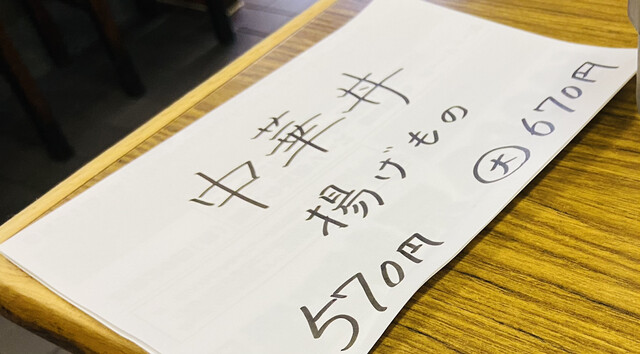 中華丼
揚げもの
570円
大 670円